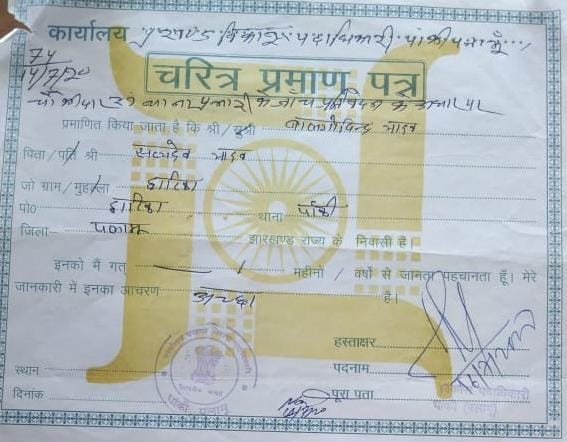 कार्यालय प्रखण्ड विकास पदाधिकारी पांकी पलामू
74
14/7/20
चरित्र प्रमाण पत्र
चौकीदार एवं थाना प्रभारी के जाँच प्रतिवेदन के आधार पर
प्रमाणित किया जाता है कि श्री / सुश्री बालगोविन्द यादव
पिता / पति श्री सत्यदेव यादव
जो ग्राम / मुहल्ला द्वारिका
पो० द्वारिका थाना पांकी
जिला पलामू झारखण्ड राज्य के निवासी है।
इनको मैं गत महीनों / वर्षो से जानता पहचानता हूँ। मेरे
जानकारी में इनका आचरण अच्छा है।
हस्ताक्षर
स्थान पदनाम
दिनांक पूरा पता
पांकी (पलामू)